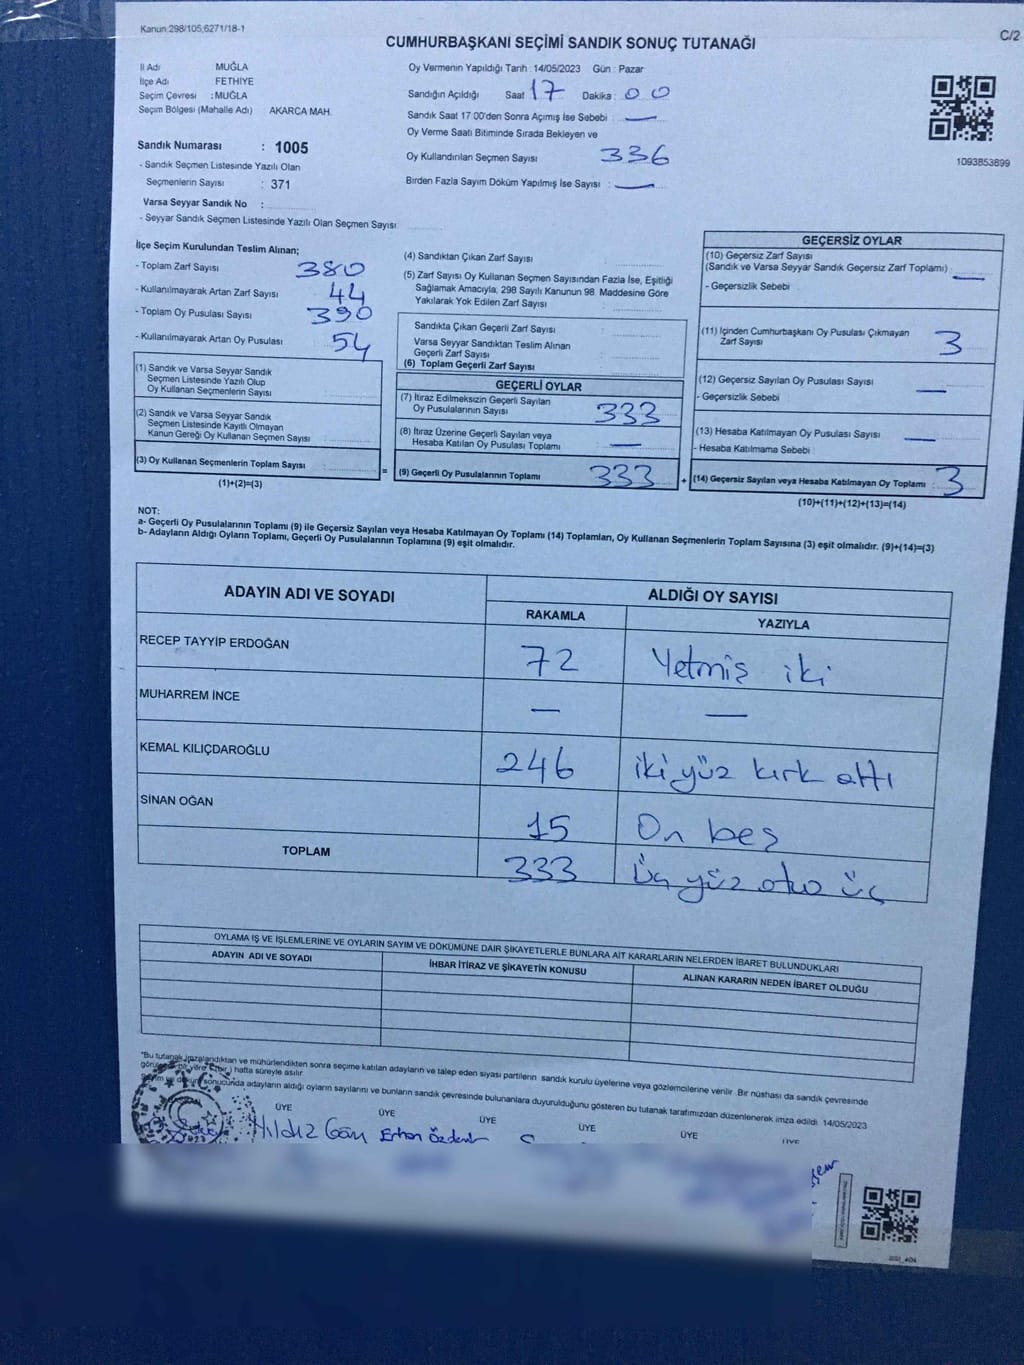 Kanun:298/105,6271/18-1
C/2
CUMHURBAŞKANI SEÇİMİ SANDIK SONUÇ TUTANAĞI
İl Adı MUĞLA
İlçe Adı FETHİYE
Seçim Çevresi : MUĞLA
Seçim Bölgesi (Mahalle Adı) AKARCA MAH.
Sandık Numarası : 1005
- Sandık Seçmen Listesinde Yazılı Olan
Seçmenlerin Sayısı : 371
Varsa Seyyar Sandık No :
- Seyyar Sandık Seçmen Listesinde Yazılı Olan Seçmen Sayısı
Oy Vermenin Yapıldığı Tarih : 14/05/2023 Gün : Pazar
Sandığın Açıldığı Saat 17 Dakika : 00
Sandık Saat 17:00'den Sonra Açımış İse Sebebi : —
Oy Verme Saati Bitiminde Sırada Bekleyen ve
Oy Kullandırılan Seçmen Sayısı 336
Birden Fazla Sayım Döküm Yapılmış İse Sayısı : —
1093853899
İlçe Seçim Kurulundan Teslim Alınan;
- Toplam Zarf Sayısı 380
- Kullanılmayarak Artan Zarf Sayısı 44
- Toplam Oy Pusulası Sayısı 390
- Kullanılmayarak Artan Oy Pusulası 54
(1) Sandık ve Varsa Seyyar Sandık
Seçmen Listesinde Yazılı Olup
Oy Kullanan Seçmenlerin Sayısı
(2) Sandık ve Varsa Seyyar Sandık
Seçmen Listesinde Kayıtlı Olmayan
Kanun Gereği Oy Kullanan Seçmen Sayısı
(3) Oy Kullanan Seçmenlerin Toplam Sayısı :
(1)+(2)=(3)
=
(4) Sandıktan Çıkan Zarf Sayısı
(5) Zarf Sayısı Oy Kullanan Seçmen Sayısından Fazla İse, Eşitliği
Sağlamak Amacıyla, 298 Sayılı Kanunun 98. Maddesine Göre
Yakılarak Yok Edilen Zarf Sayısı
Sandıkta Çıkan Geçerli Zarf Sayısı
Varsa Seyyar Sandıktan Teslim Alınan
Geçerli Zarf Sayısı
(6) Toplam Geçerli Zarf Sayısı
GEÇERLİ OYLAR
(7) İtiraz Edilmeksizin Geçerli Sayılan
Oy Pusulalarının Sayısı 333
(8) İtiraz Üzerine Geçerli Sayılan veya
Hesaba Katılan Oy Pusulası Toplamı —
(9) Geçerli Oy Pusulalarının Toplamı 333
+
GEÇERSİZ OYLAR
(10) Geçersiz Zarf Sayısı
(Sandık ve Varsa Seyyar Sandık Geçersiz Zarf Toplamı) —
- Geçersizlik Sebebi :
(11) İçinden Cumhurbaşkanı Oy Pusulası Çıkmayan
Zarf Sayısı 3
(12) Geçersiz Sayılan Oy Pusulası Sayısı —
- Geçersizlik Sebebi
(13) Hesaba Katılmayan Oy Pusulası Sayısı —
- Hesaba Katılmama Sebebi :
(14) Geçersiz Sayılan veya Hesaba Katılmayan Oy Toplamı : 3
(10)+(11)+(12)+(13)=(14)
NOT:
a- Geçerli Oy Pusulalarının Toplamı (9) ile Geçersiz Sayılan veya Hesaba Katılmayan Oy Toplamı (14) Toplamları, Oy Kullanan Seçmenlerin Toplam Sayısına (3) eşit olmalıdır. (9)+(14)=(3)
b- Adayların Aldığı Oyların Toplamı, Geçerli Oy Pusulalarının Toplamına (9) eşit olmalıdır.
ADAYIN ADI VE SOYADI ALDIĞI OY SAYISI
RAKAMLA YAZIYLA
RECEP TAYYİP ERDOĞAN 72 Yetmiş iki
MUHARREM İNCE — —
KEMAL KILIÇDAROĞLU 246 iki yüz kırk altı
SİNAN OĞAN 15 On beş
TOPLAM 333 Üç yüz otuz üç
OYLAMA İŞ VE İŞLEMLERİNE VE OYLARIN SAYIM VE DÖKÜMÜNE DAİR ŞİKAYETLERLE BUNLARA AİT KARARLARIN NELERDEN İBARET BULUNDUKLARI
ADAYIN ADI VE SOYADI İHBAR İTİRAZ VE ŞİKAYETİN KONUSU ALINAN KARARIN NEDEN İBARET OLDUĞU
"Bu tutanak imzalandıktan ve mühürlendikten sonra seçime katılan adayların ve talep eden siyasi partilerin sandık kurulu üyelerine veya gözlemcilerine verilir. Bir nüshası da sandık çevresinde
hafta süreyle asılır.
sonucunda adayların aldığı oyların sayılarını ve bunların sandık çevresinde bulunanlara duyurulduğunu gösteren bu tutanak tarafımızdan düzenlenerek imza edildi. 14/05/2023
ÜYE ÜYE ÜYE ÜYE ÜYE ÜYE
Yıldız Erhan